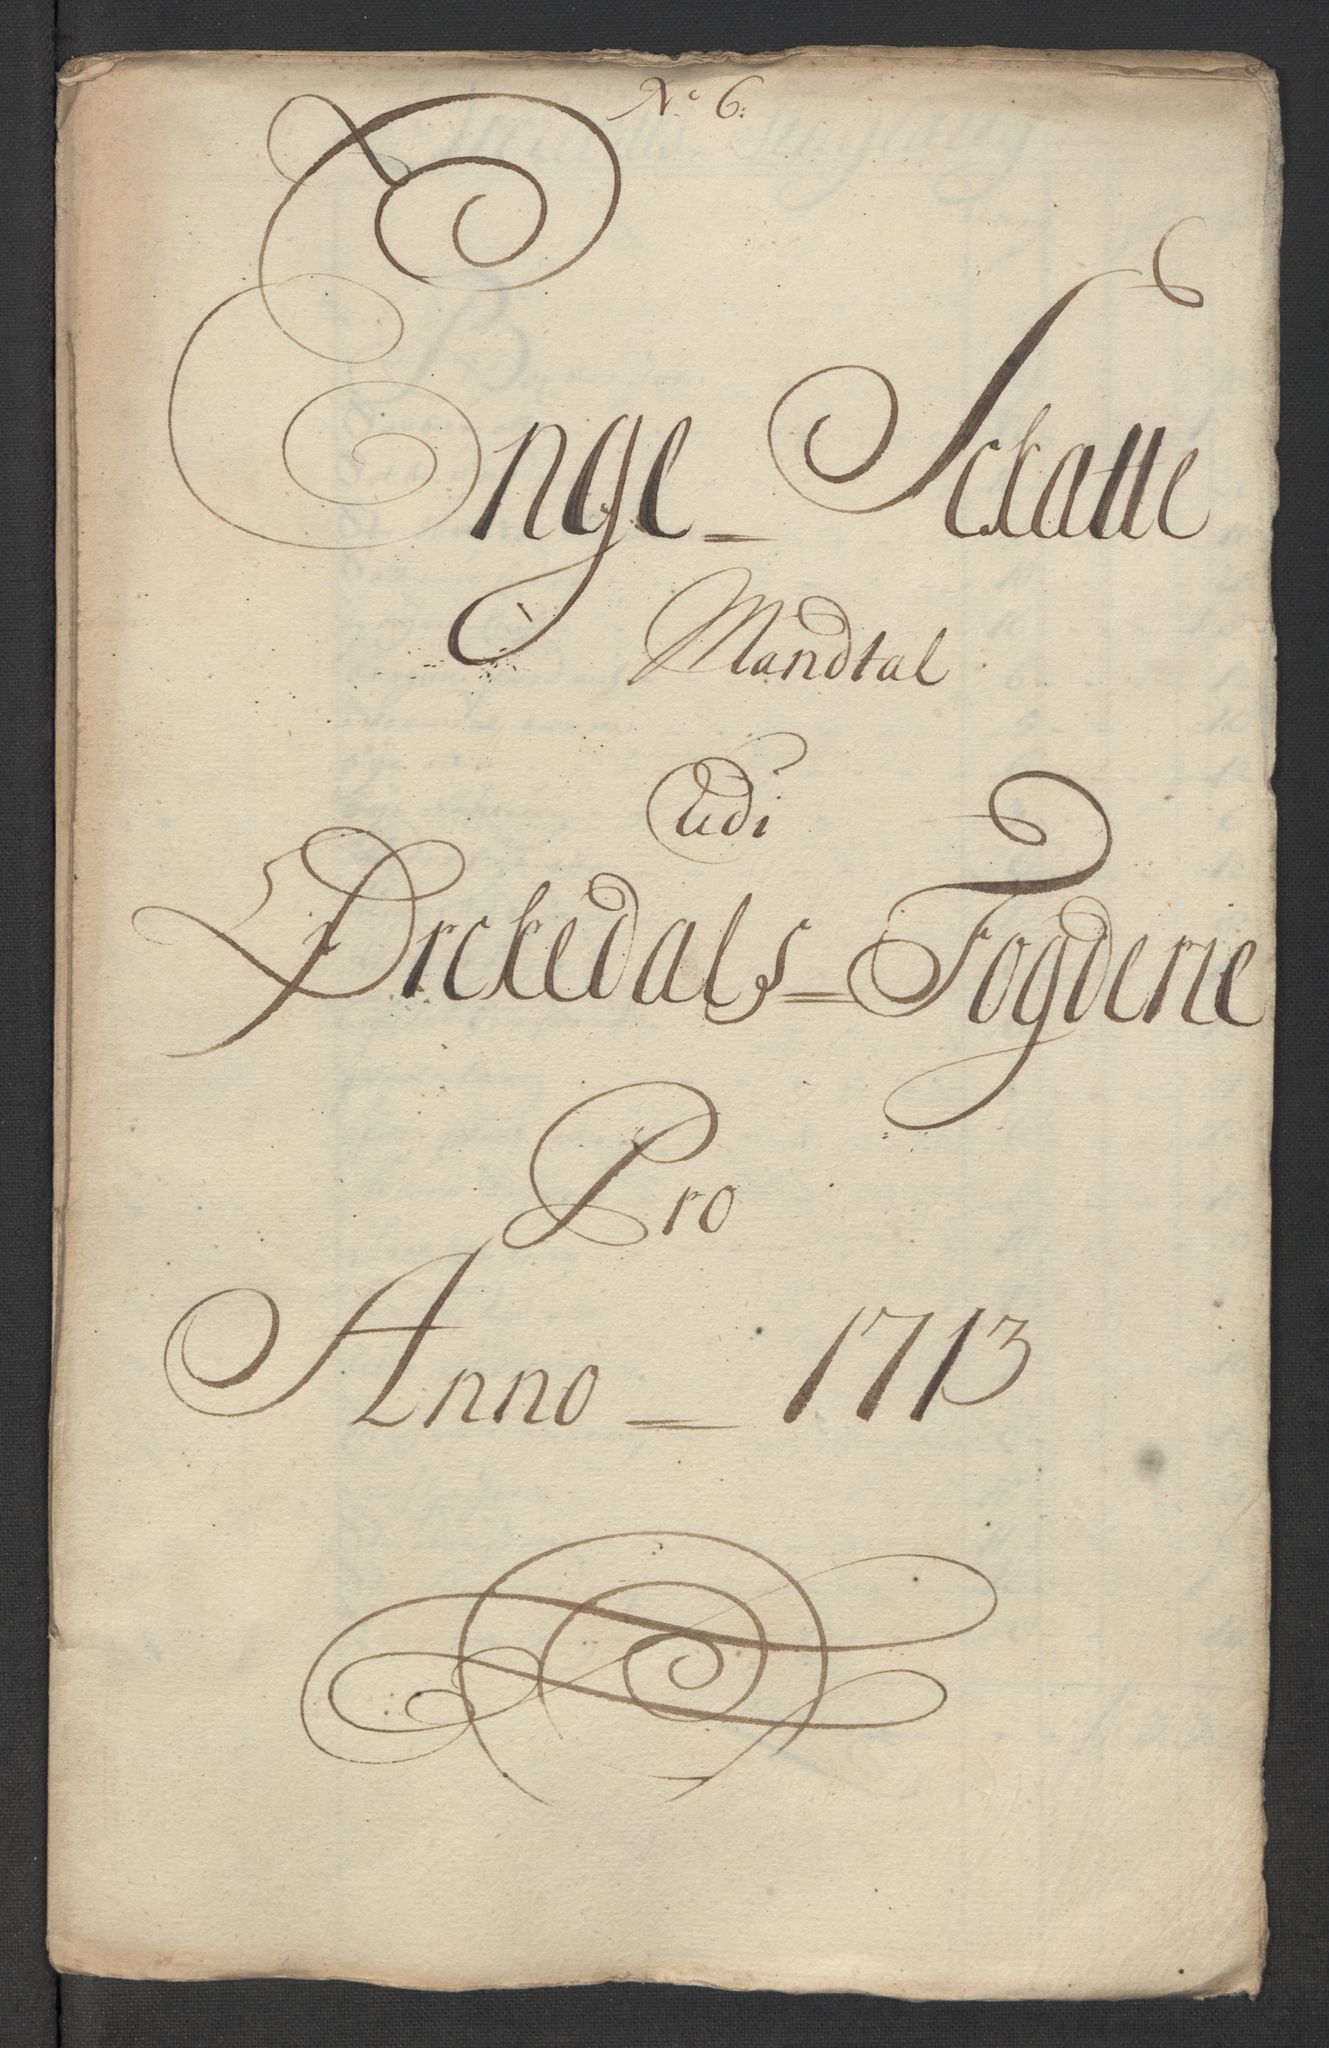 No 6:
Enge = Sckatte
Mandtal
Udi
Ørckedals = Fogderie
Pro
Anno = 1713